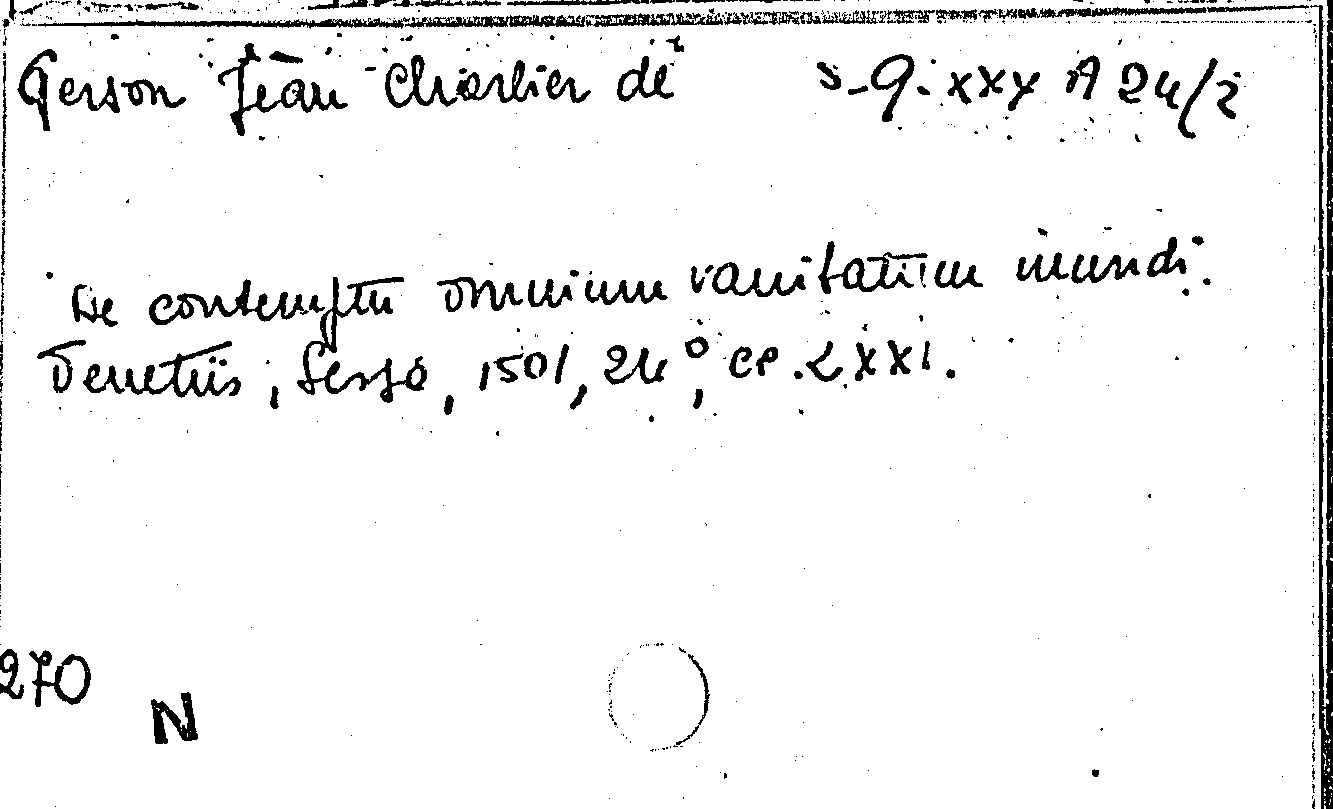 Gerson Jean Charlier de S-Q. XXX A 24/2
De contemptu omnium vanitatum mundi.
Venetiis, Sessa, 1501, 24°, cc. LXXI.
270
N